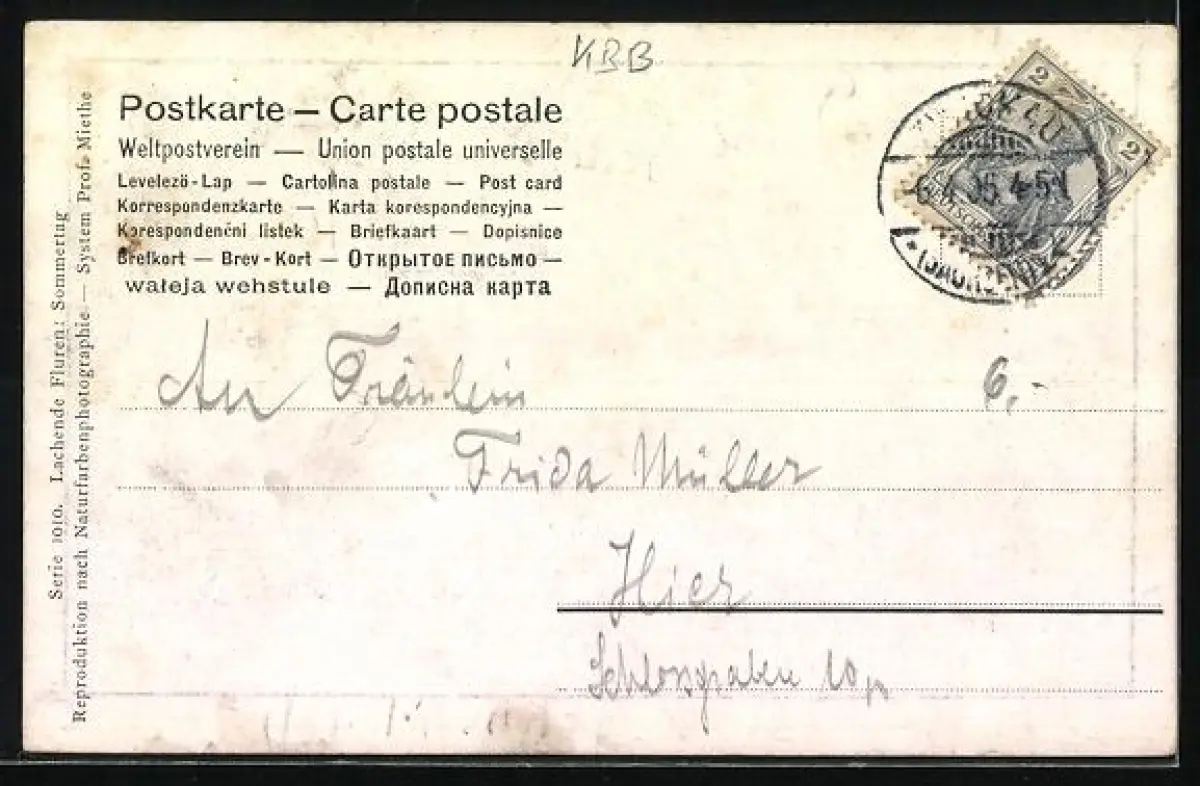 KBB
Postkarte — Carte postale
Weltpostverein — Union postale universelle
Levelező-Lap — Cartolina postale — Post card
Korrespondenzkarte — Karta korespondencyjna —
Korespondenční listek — Briefkaart — Dopisnice
Brefkort — Brev-Kort — Открытое письмо —
wałeja wehstule — Дописна карта
Serie 1010. Lachende Fluren: Sommertag
Reproduktion nach Naturfarbenphotographie — System Prof. Miethe
2 2
An Fräulein
6,-
Frida Müller
Hier
Schlossgraben 10